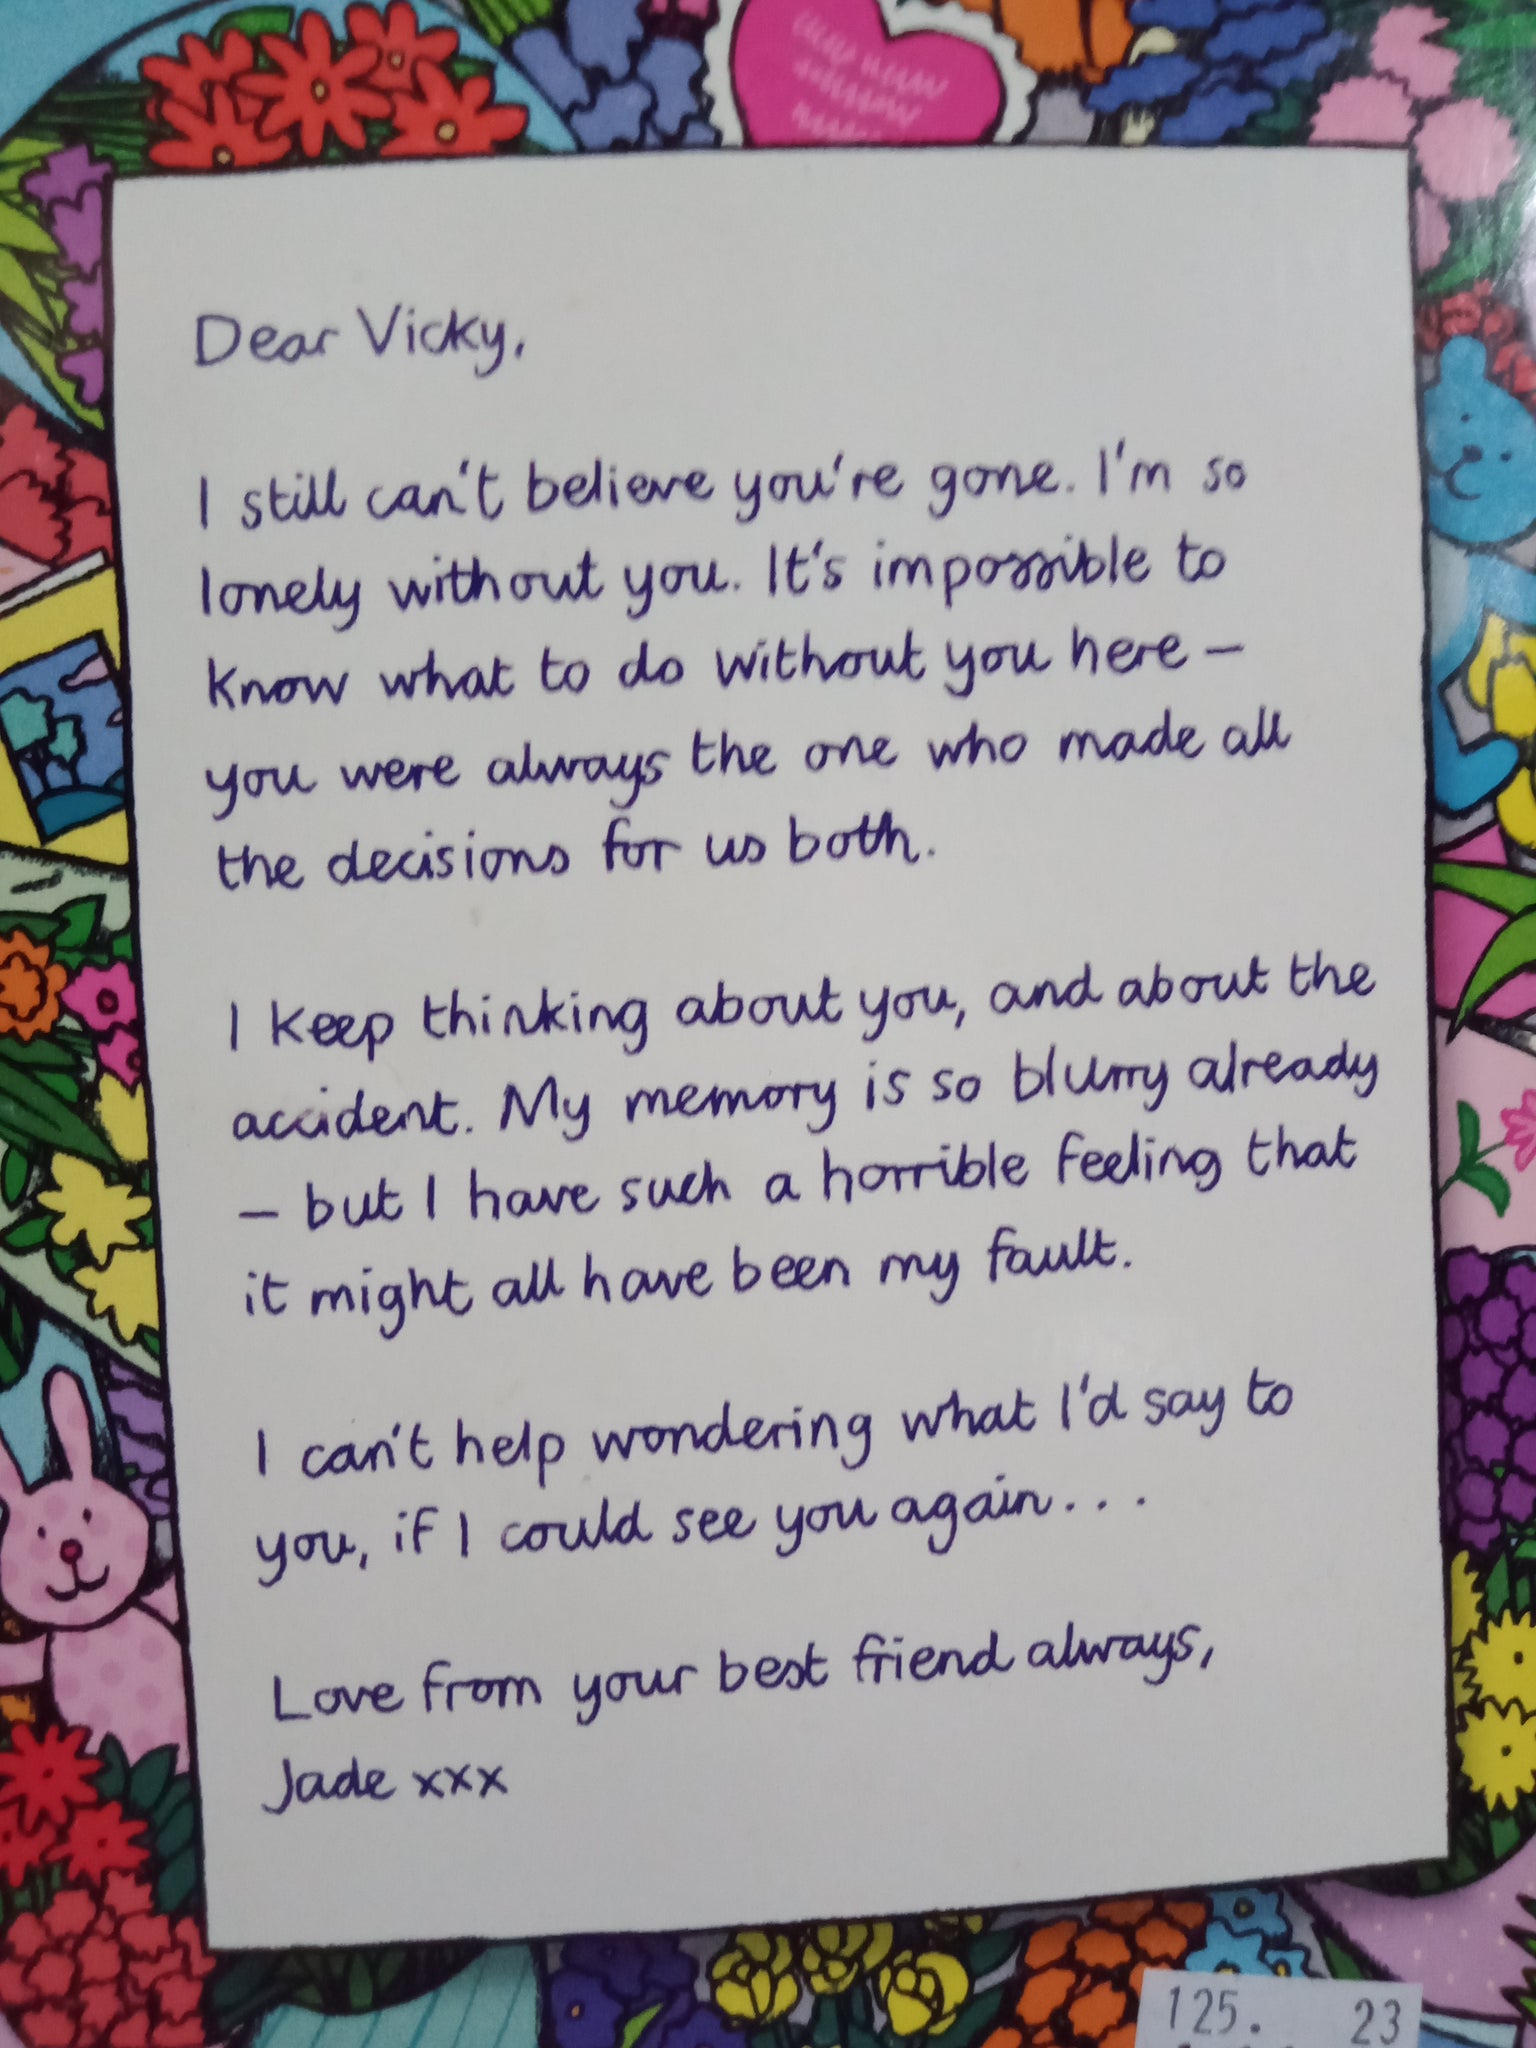 Dear Vicky,
I still can't believe you're gone. I'm so
lonely without you. It's impossible to
know what to do without you here –
you were always the one who made all
the decisions for us both.
I keep thinking about you, and about the
accident. My memory is so blurry already
– but I have such a horrible feeling that
it might all have been my fault.
I can't help wondering what I'd say to
you, if I could see you again...
Love from your best friend always,
Jade xxx
125. 23